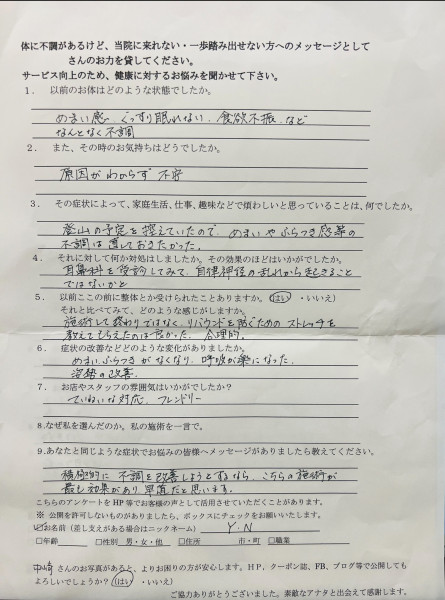 体に不調があるけど、当院に来れない・一歩踏み出せない方へのメッセージとして
さんのお力を貸してください。
サービス向上のため、健康に対するお悩みを聞かせて下さい。
1. 以前のお体はどのような状態でしたか。
めまい感、ぐっすり眠れない、食欲不振、など
なんとなく不調
2. また、その時のお気持ちはどうでしたか。
原因がわからず不安
3. その症状によって、家庭生活、仕事、趣味などで煩わしいと思っていることは、何でしたか。
登山の予定を控えていたので、めまいやふらつき感等の
不調は直しておきたかった。
4. それに対して何か対処はしましたか。その効果のほどはいかがでしたか。
耳鼻科を受診してみて、自律神経の乱れから起きること
ではないかと
5. 以前ここの前に整体とか受けられたことありますか。(はい ・いいえ)
それと比べてみて、どのような感じがしますか。
施術して終わりではなく、リバウンドを防ぐための ストレッチを
教えてもらえたのは良かった。 合理的。
6. 症状の改善などどのような変化がありましたか。
めまい、ふらつきがなくなり、呼吸が楽になった。
姿勢の改善。
7. お店やスタッフの雰囲気はいかがでしたか?
ていねいな対応、フレンドリー
8.なぜ私を選んだのか。私の施術を一言で。
9.あなたと同じような症状でお悩みの皆様へメッセージがありましたら教えてください。
積極的に不調を改善しようとするなら、こちらの施術が
最も効果があり早道だと思います。
こちらのアンケートをHP等でお客様の声として活用させていただくことがあります。
※ 公開を許しないものがありましたら、ボックスにチェックをお願いいたします。
☑お名前(差し支えがある場合はニックネーム) Y.N
□年齢 □性別 男・女・他 □住所 市・町 □職業
さんのお写真があると、よりお困りの方が安心します。HP、クーポン誌、FB、ブログ等で公開しても
よろしいでしょうか?(はい ・いいえ)
ご協力ありがとうございました。素敵なアナタと出会えて感謝します。